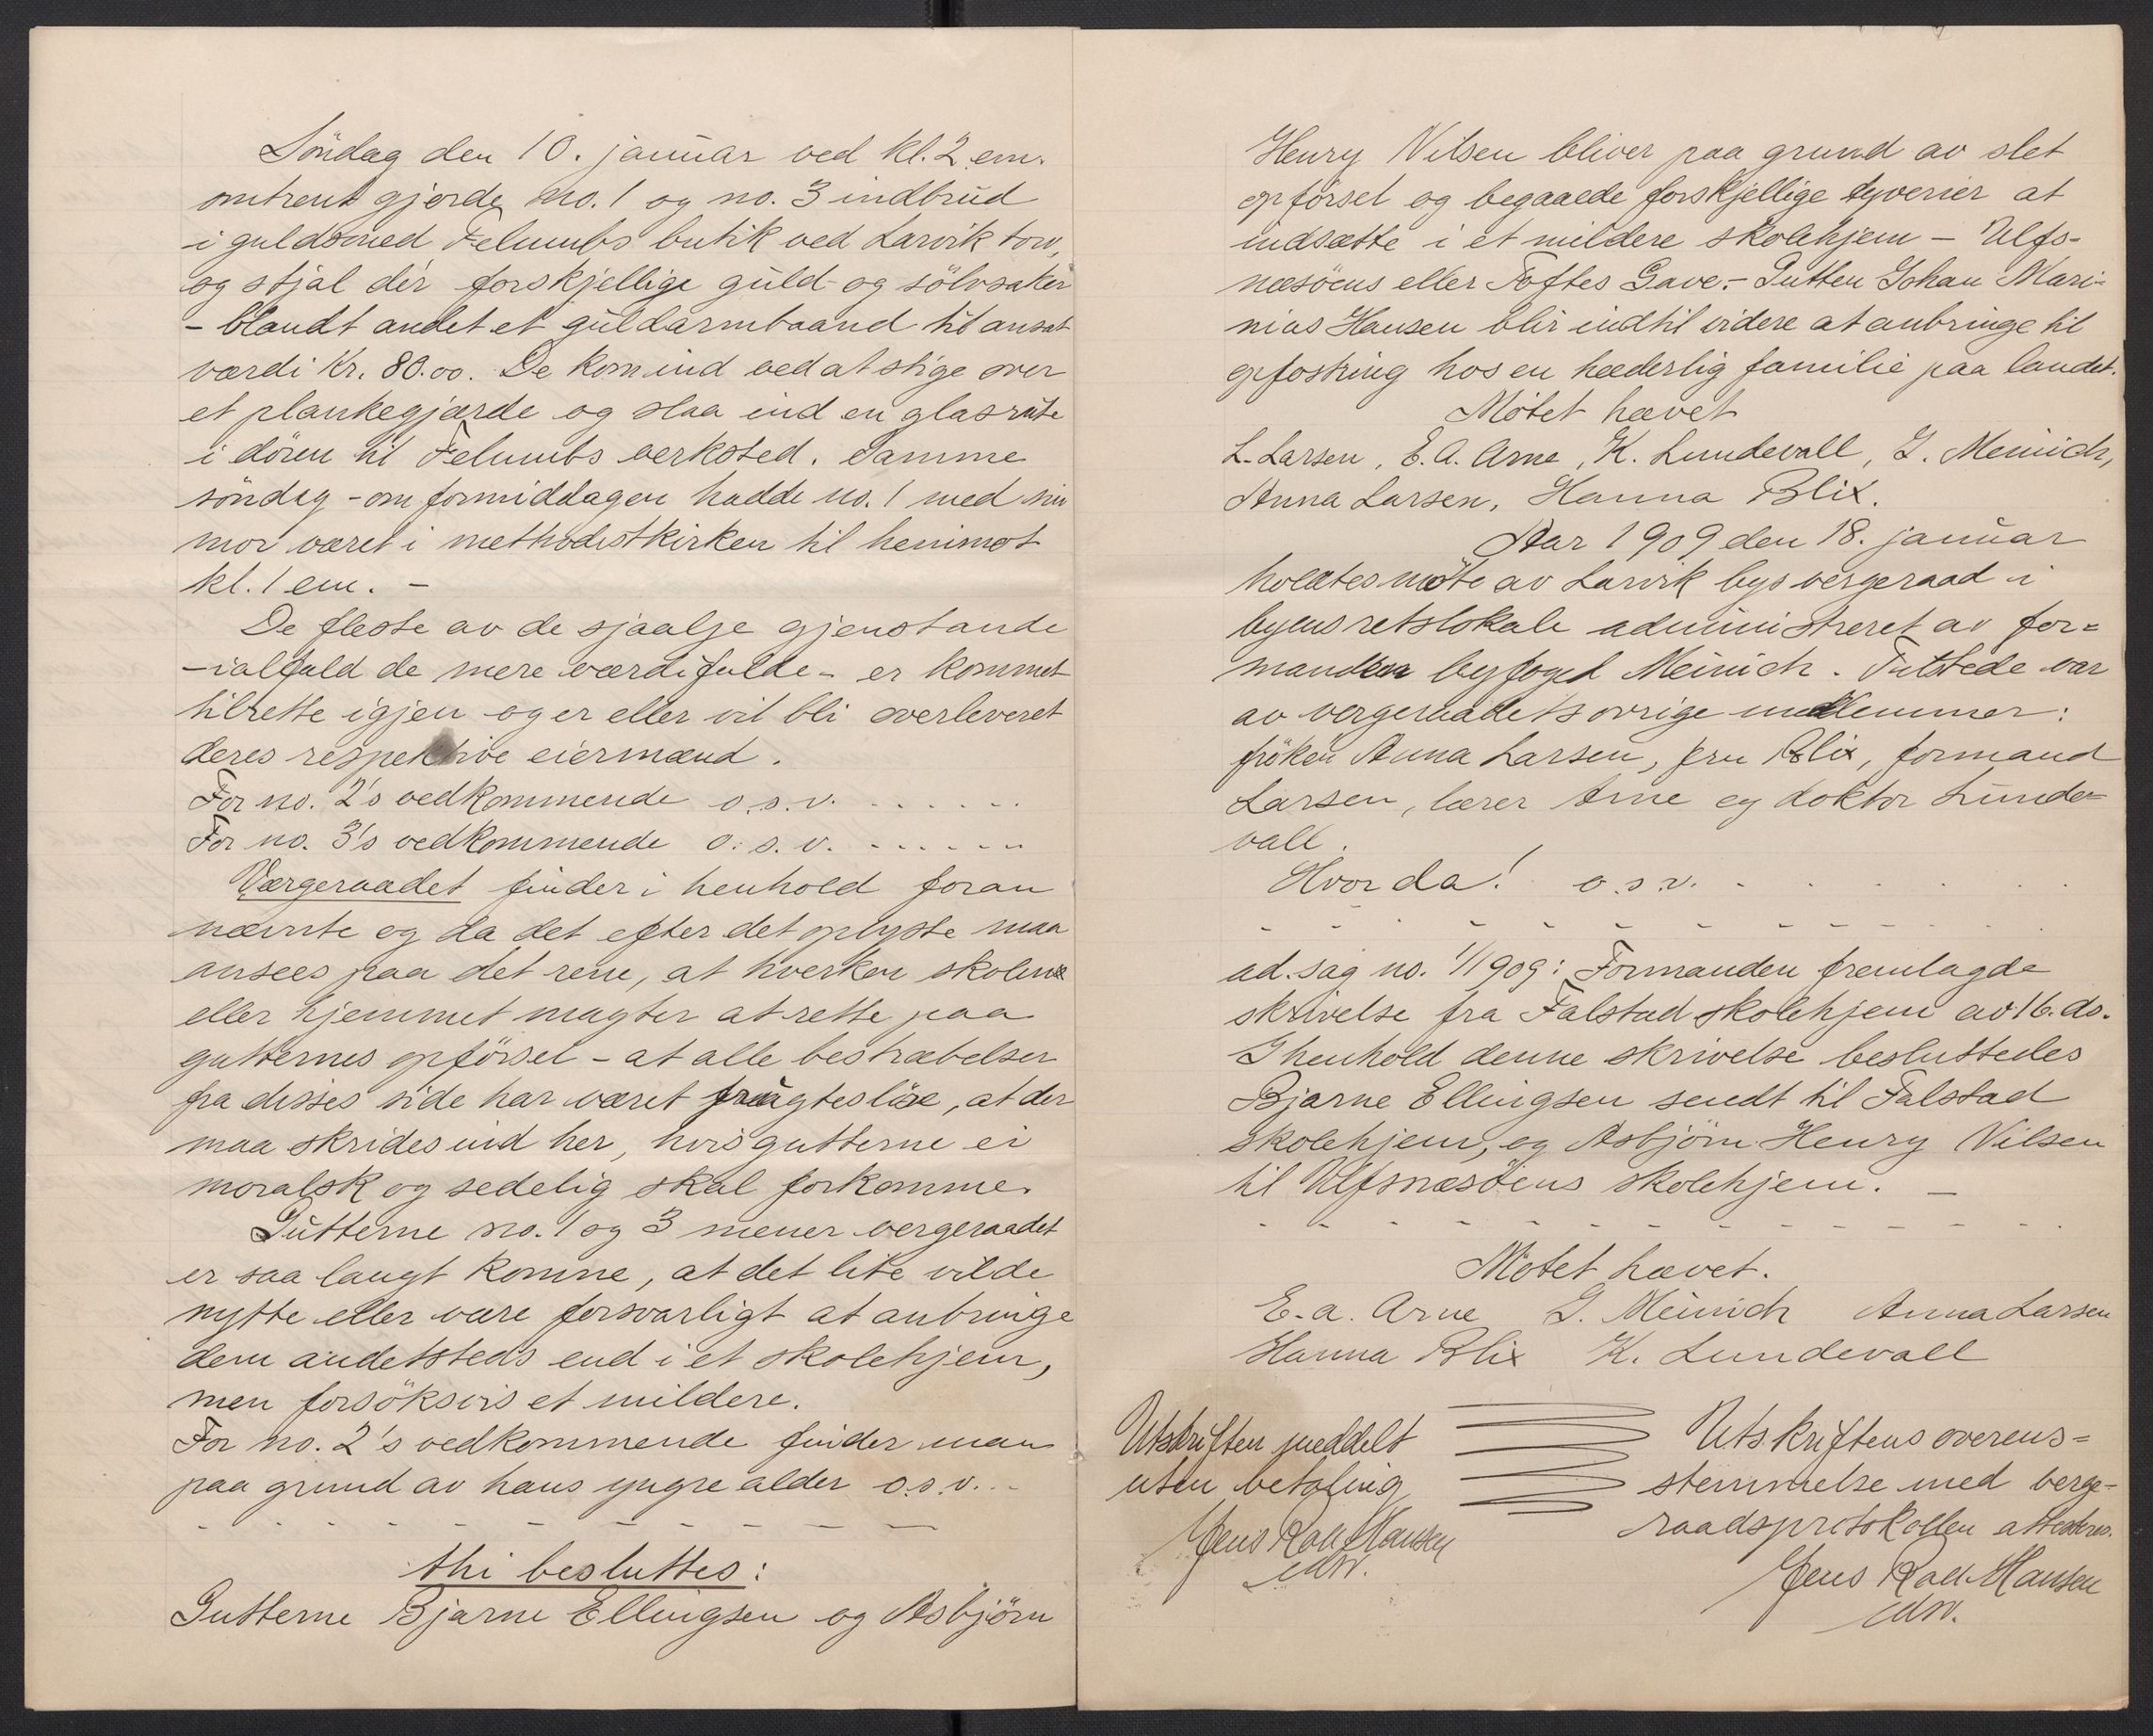 Söndag den 10. januar ved kl. 2 em.
omtrent gjorde no. 1 og no. 3 indbrud
i guldsmed Felumbs butik ved Larvik torv,
og stjal dér forskjellige guld- og sölvsaker
- blandt andet et guldarmbaand til ansat
værdi Kr. 80.00. De kom ind ved at stige over
et plankegjærde og slaa ind en glasrute
i dören til Felumbs verksted. Samme
söndag - om formiddagen hadde no. 1 med sin
mor været i methodistkirken til henimot
kl. 1 em. -
De fleste av de stjaalne gjenstande
- ialfald de mere værdifulde - er kommet
tilrette igjen og er eller vil bli overleveret
deres respektive eiermænd.
For no. 2's vedkommende o.s.v. . . . . . .
For no. 3's vedkommende o.s.v. . . . . . .
Værgeraadet finder i henhold foran
nævnte og da det efter det oplyste maa
ansees paa det rene, at hverken skolene
eller hjemmet magter at rette paa
gutternes opförsel - at alle bestræbelser
fra disses side har været frugteslöse, at der
maa skrides ind her, hvis gutterne ei
moralsk og sedelig skal forkomme.
Gutterne no. 1 og 3 mener vergeraadet
er saa langt komne, at det lite vilde
nytte eller være forsvarligt at anbringe
dem andetsteds end i et skolehjem,
men forsöksvis et mildere.
For no. 2's vedkommende finder man
paa grund av hans yngre alder o.s.v. . -
- - - - - - - - - - -
thi besluttes:
Gutterne Bjarne Ellingsen og Asbjörn
Henry Nilsen bliver paa grund av slet
opförsel og begaaede forskjellige tyverier at
indsætte i et mildere skolehjem - Ulfs-
næsöens eller Toftes Gave. - Gutten Johan Mari-
nius Hansen blir indtil videre at anbringe til
opfostring hos en hæderlig familie paa landet.
Mötet hævet
L. Larsen, E. A. Arne, K. Lundevall, G. Meinich,
Anna Larsen, Hanna Blix.
Aar 1909 den 18. januar
holdtes möte av Larvik bys vergeraad i
byens retslokale administreret av for=
manden byfoged Meinich. Tilstede var
av vergeraadets övrige medlemmer:
fröken Anna Larsen, fru Blix, formand
Larsen, lærer Arne og doktor Lunde=
vall.
Hvor da! o.s.v. . . . . . .
- - - - - - - - - - - -
ad. sag no. 1/1909: Formanden fremlagde
skrivelse fra Falstad skolehjem av 16. ds.
I henhold denne skrivelse besluttedes
Bjarne Ellingsen sendt til Falstad
skolehjem, og Asbjörn Henry Nilsen
til Ulfsnæsöens skolehjem. -
- - - - - - - - - - - - -
Mötet hævet.
E. A. Arne G. Meinich Anna Larsen
Hanna Blix K. Lundevall
Utskriften meddelt
uten betaling
Jens Hansen
Utskriftens overens=
stemmelse med verge-
raadsprotokollen attesteres.
Jens Hansen